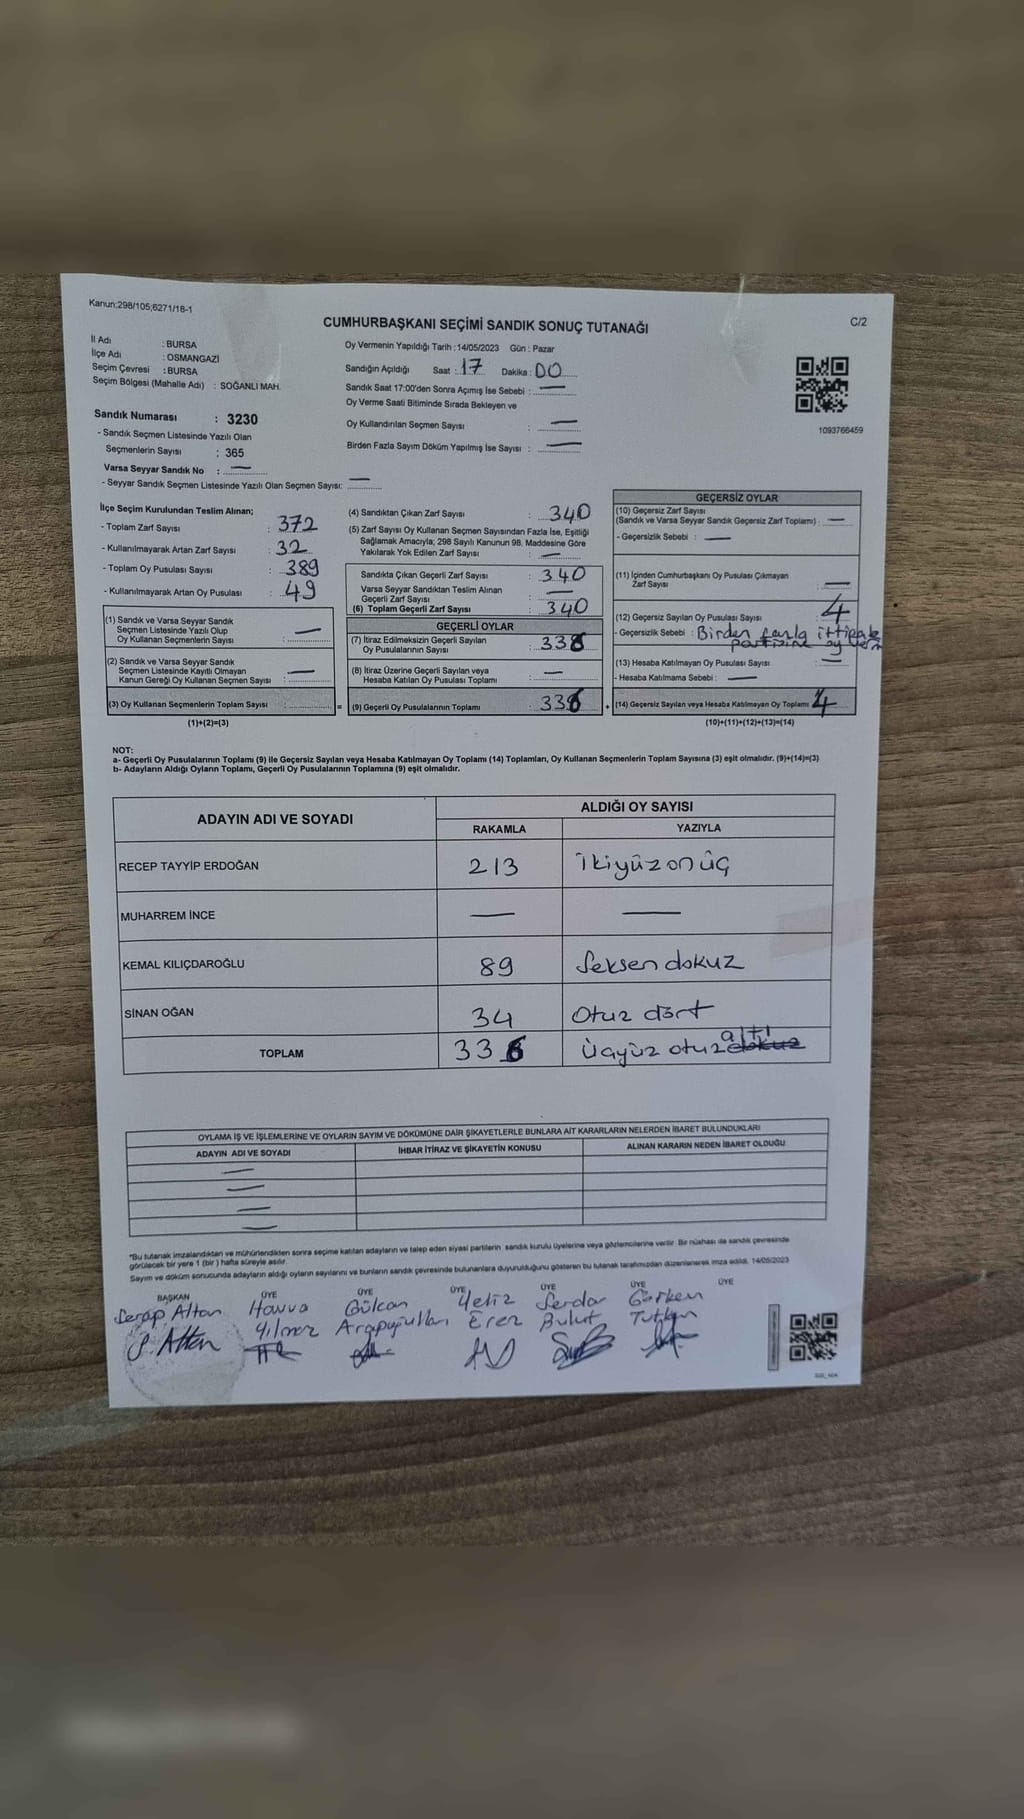 Kanun:298/105;6271/18-1
CUMHURBAŞKANI SEÇİMİ SANDIK SONUÇ TUTANAĞI
C/2
İl Adı : BURSA
İlçe Adı : OSMANGAZİ
Seçim Çevresi : BURSA
Seçim Bölgesi (Mahalle Adı) : SOĞANLI MAH.
Sandık Numarası : 3230
- Sandık Seçmen Listesinde Yazılı Olan
Seçmenlerin Sayısı : 365
Varsa Seyyar Sandık No : —
- Seyyar Sandık Seçmen Listesinde Yazılı Olan Seçmen Sayısı: —
Oy Vermenin Yapıldığı Tarih :14/05/2023 Gün : Pazar
Sandığın Açıldığı Saat : 17 Dakika : 00
Sandık Saat 17:00'den Sonra Açımış İse Sebebi : —
Oy Verme Saati Bitiminde Sırada Bekleyen ve
Oy Kullandırılan Seçmen Sayısı : —
Birden Fazla Sayım Döküm Yapılmış İse Sayısı : —
1093766459
İlçe Seçim Kurulundan Teslim Alınan;
- Toplam Zarf Sayısı : 372
- Kullanılmayarak Artan Zarf Sayısı : 32
- Toplam Oy Pusulası Sayısı : 389
- Kullanılmayarak Artan Oy Pusulası : 49
(1) Sandık ve Varsa Seyyar Sandık
Seçmen Listesinde Yazılı Olup
Oy Kullanan Seçmenlerin Sayısı : —
(2) Sandık ve Varsa Seyyar Sandık
Seçmen Listesinde Kayıtlı Olmayan
Kanun Gereği Oy Kullanan Seçmen Sayısı : —
(3) Oy Kullanan Seçmenlerin Toplam Sayısı :
(1)+(2)=(3)
(4) Sandıktan Çıkan Zarf Sayısı : 340
(5) Zarf Sayısı Oy Kullanan Seçmen Sayısından Fazla İse, Eşitliği
Sağlamak Amacıyla; 298 Sayılı Kanunun 98. Maddesine Göre
Yakılarak Yok Edilen Zarf Sayısı : —
Sandıkta Çıkan Geçerli Zarf Sayısı : 340
Varsa Seyyar Sandıktan Teslim Alınan
Geçerli Zarf Sayısı : —
(6) Toplam Geçerli Zarf Sayısı : 340
GEÇERLİ OYLAR
(7) İtiraz Edilmeksizin Geçerli Sayılan
Oy Pusulalarının Sayısı : 336
(8) İtiraz Üzerine Geçerli Sayılan veya
Hesaba Katılan Oy Pusulası Toplamı : —
= (9) Geçerli Oy Pusulalarının Toplamı : 336
GEÇERSİZ OYLAR
(10) Geçersiz Zarf Sayısı
(Sandık ve Varsa Seyyar Sandık Geçersiz Zarf Toplamı) : —
- Geçersizlik Sebebi : —
(11) İçinden Cumhurbaşkanı Oy Pusulası Çıkmayan
Zarf Sayısı : —
(12) Geçersiz Sayılan Oy Pusulası Sayısı : 4
- Geçersizlik Sebebi : Birden fazla ittifak
partisine oy
(13) Hesaba Katılmayan Oy Pusulası Sayısı : —
- Hesaba Katılmama Sebebi : —
+ (14) Geçersiz Sayılan veya Hesaba Katılmayan Oy Toplamı : 4
(10)+(11)+(12)+(13)=(14)
NOT:
a- Geçerli Oy Pusulalarının Toplamı (9) ile Geçersiz Sayılan veya Hesaba Katılmayan Oy Toplamı (14) Toplamları, Oy Kullanan Seçmenlerin Toplam Sayısına (3) eşit olmalıdır. (9)+(14)=(3)
b- Adayların Aldığı Oyların Toplamı, Geçerli Oy Pusulalarının Toplamına (9) eşit olmalıdır.
ADAYIN ADI VE SOYADI ALDIĞI OY SAYISI
RAKAMLA YAZIYLA
RECEP TAYYİP ERDOĞAN 213 İkiyüzonüç
MUHARREM İNCE — —
KEMAL KILIÇDAROĞLU 89 Seksen dokuz
SİNAN OĞAN 34 Otuz dört
TOPLAM 336 Üçyüz otuz altı dokuz
OYLAMA İŞ VE İŞLEMLERİNE VE OYLARIN SAYIM VE DÖKÜMÜNE DAİR ŞİKAYETLERLE BUNLARA AİT KARARLARIN NELERDEN İBARET BULUNDUKLARI
ADAYIN ADI VE SOYADI İHBAR İTİRAZ VE ŞİKAYETİN KONUSU ALINAN KARARIN NEDEN İBARET OLDUĞU
—
—
—
—
*Bu tutanak imzalandıktan ve mühürlendikten sonra seçime katılan adayların ve talep eden siyasi partilerin sandık kurulu üyelerine veya gözlemcilerine verilir. Bir nüshası da sandık çevresinde
görülecek bir yere 1 (bir) hafta süreyle asılır.
Sayım ve döküm sonucunda adayların aldığı oyların sayılarını ve bunların sandık çevresinde bulunanlara duyurulduğunu gösteren bu tutanak tarafımızdan düzenlenerek imza edildi. 14/05/2023
BAŞKAN ÜYE ÜYE ÜYE ÜYE ÜYE ÜYE
Serap Altan Havva Gülcan Yeliz Serdar Görkem
Yılmaz Erez Bulut
S. Altan